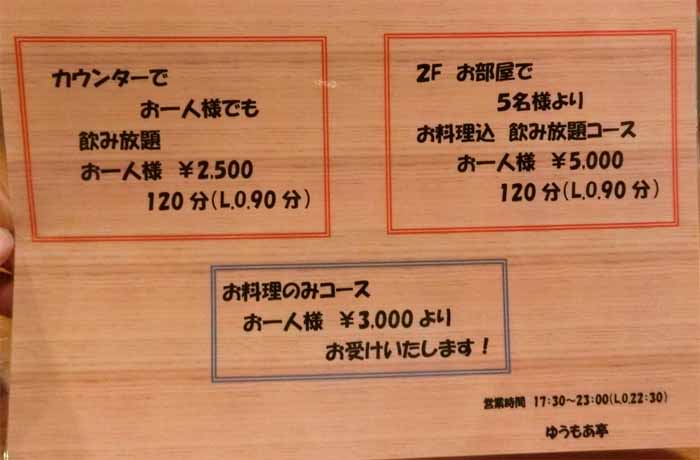 カウンターで
お一人様でも
飲み放題
お一人様 ¥2,500
120分(L.O.90分)
2F お部屋で
5名様より
お料理込 飲み放題コース
お一人様 ¥5,000
120分(L.O.90分)
お料理のみコース
お一人様 ¥3,000より
お受けいたします！
営業時間 17:30～23:00(L.O.22:30)
ゆうもあ亭